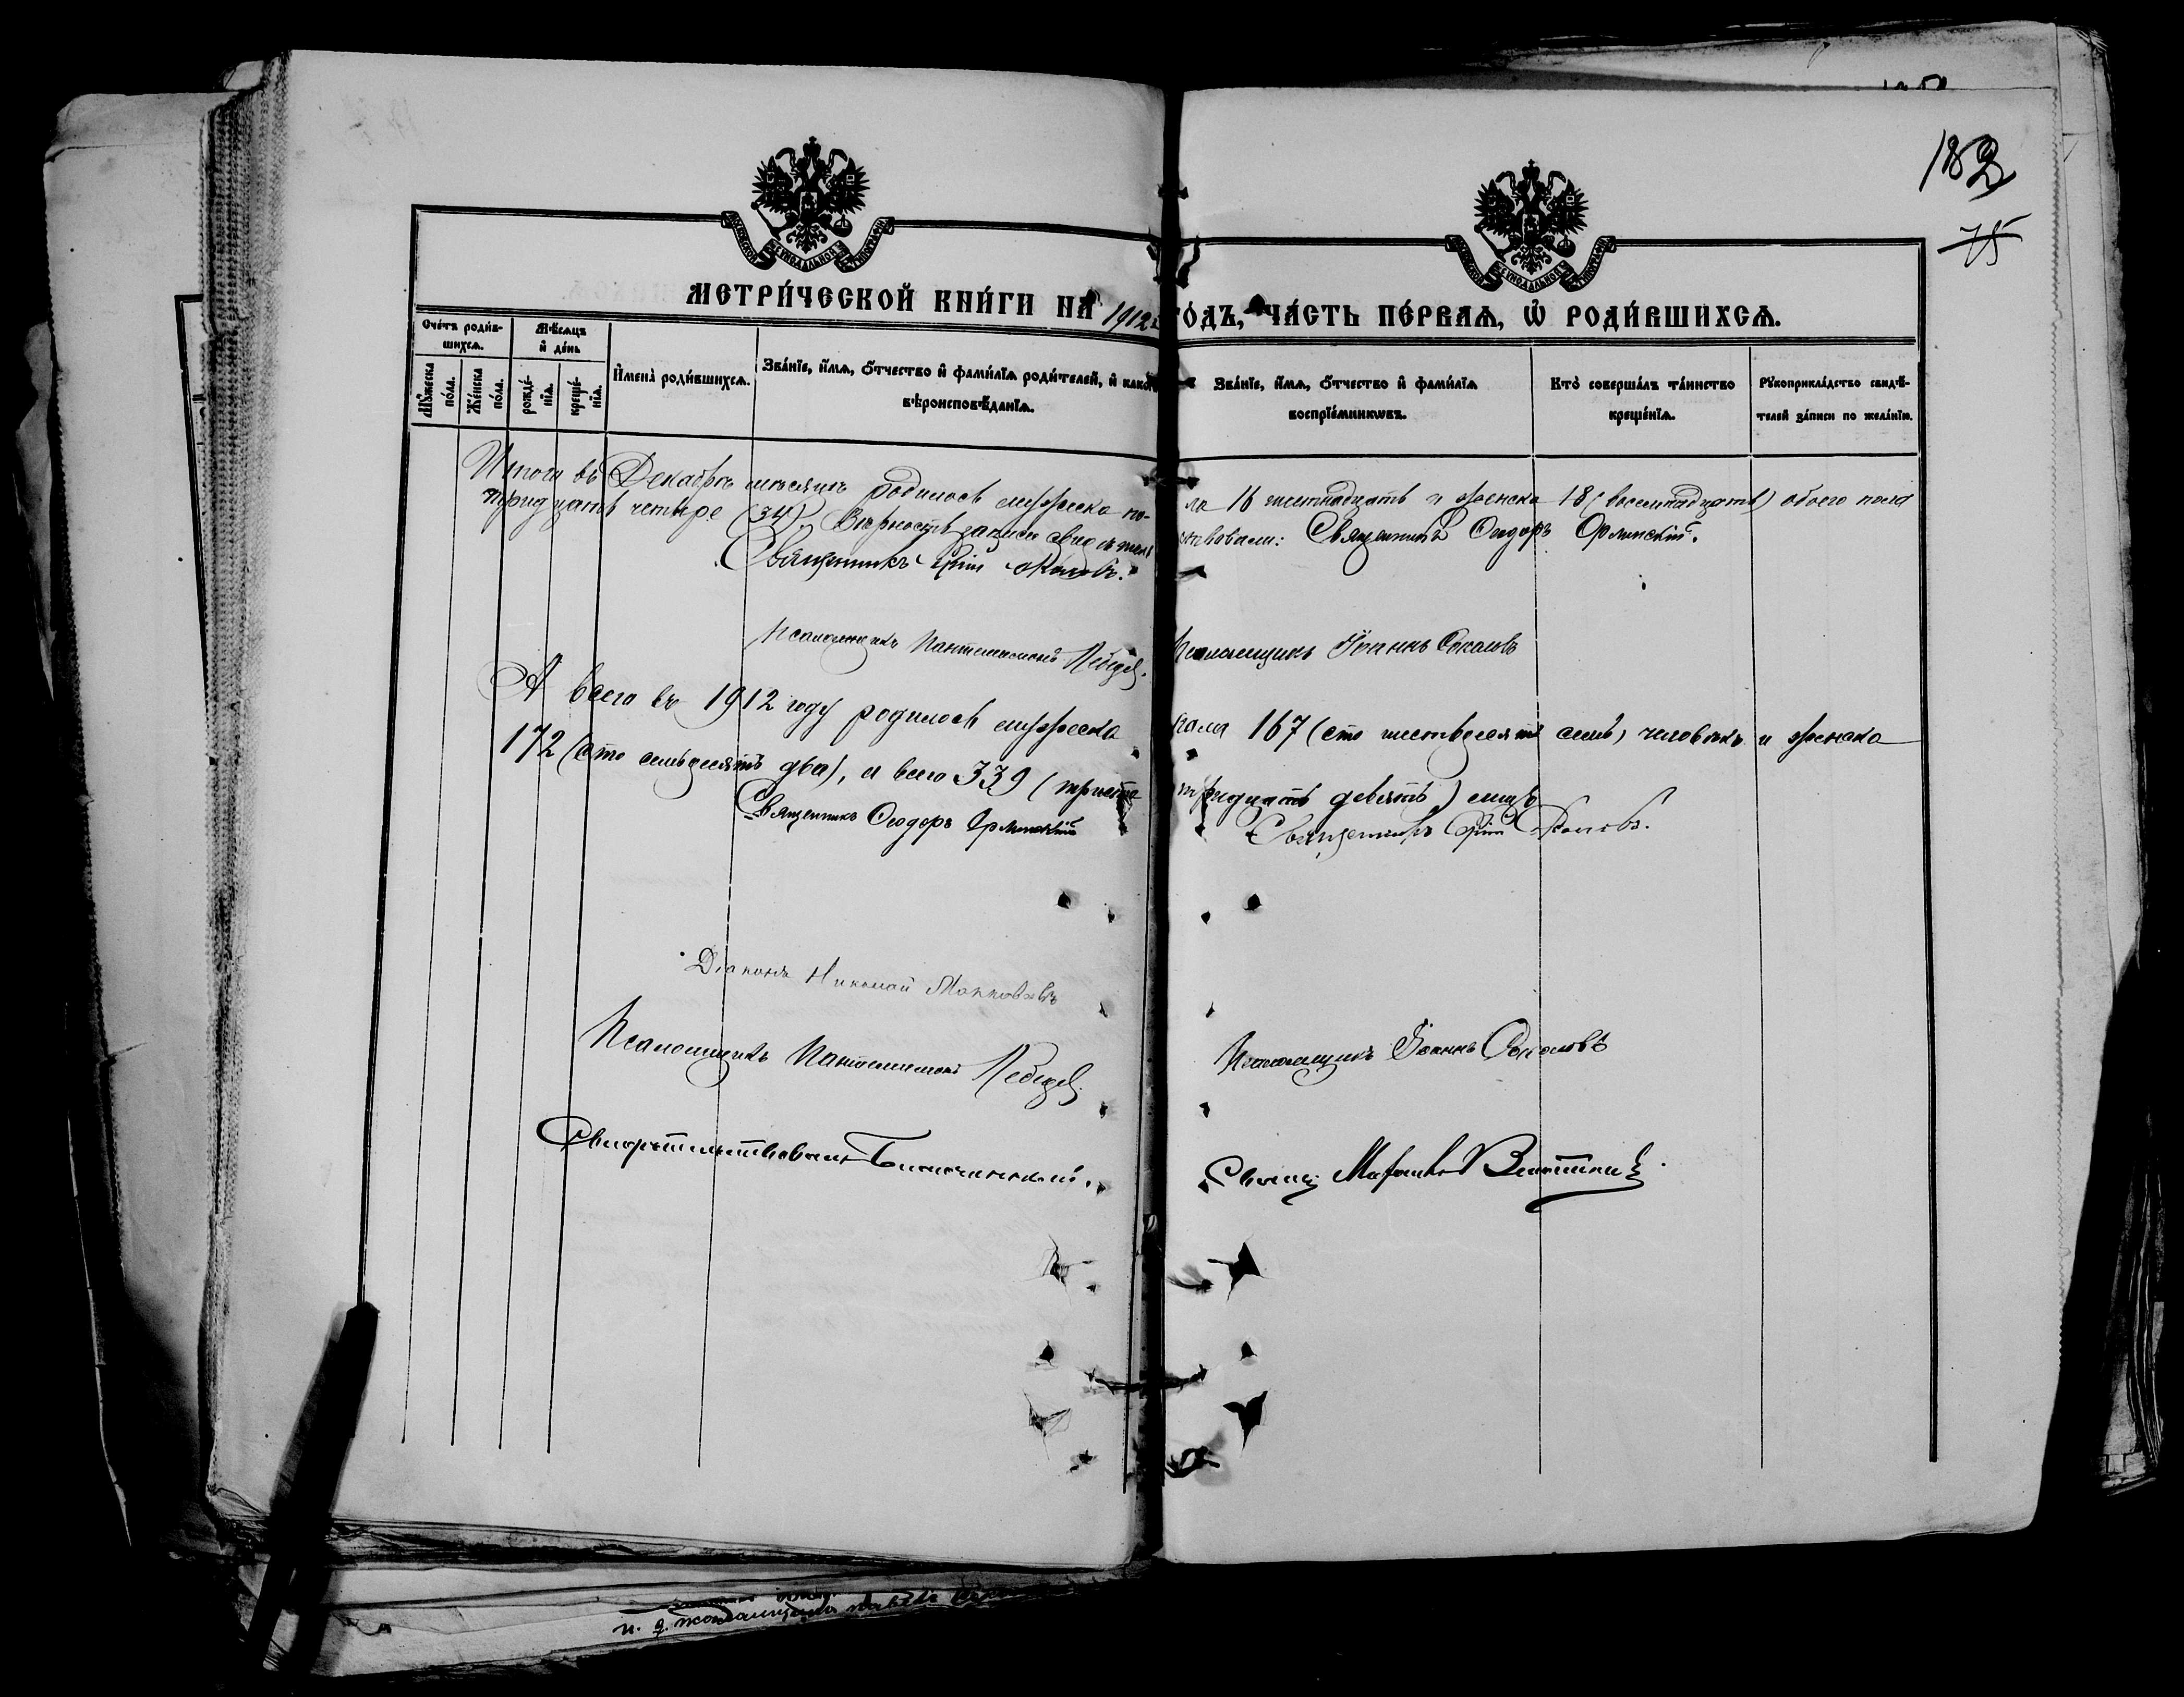 182
75
МЕТРИ́ЧЕСКОЙ КНИ́ГИ НА 1912 ГО́ДЪ, ЧА́СТЬ ПЕ́РВАѦ, Ѡ РОДИ́ВШИХСѦ.
Сче́тъ роди́в-
шихсѧ.
Мꙋ́жеска по́ла.
Же́нска по́ла.
Мѣ́сѧцъ и де́нь
рожде́-нїѧ.
креще́-нїѧ.
И́мена роди́вшихсѧ.
Зва́нїе, и́мѧ, ѻ́тчество и фами́лїѧ роди́телей, и како́
вѣроисповѣ́данїѧ.
Зва́нїе, и́мѧ, ѻ́тчество и фами́лїѧ
воспрїе́мникѡвъ.
Кто̀ соверша́лъ та́инство
креще́нїѧ.
Рꙋкоприкла́дство свидѣ́-
телей за́писи по жела́нїю.
Итого въ Декабрѣ мѣсяцѣ родилось мужеска по-ла 16 шестнадцать и женска 18 (восемнадцать) обоего пола
тридцать четыре (34). Вѣрность записи свидѣтель ствовали: Священникъ Ѳеодоръ
Священникъ
Псаломщикъ Пантелеимонъ Лебедев. Псаломщикъ Іоаннъ Соколовъ
А всего въ 1912 году родилось мужеска пола 167 (сто шестьдесятъ семь) человѣкъ и женска
172 (сто семьдесятъ два), а всего 339 (триста тридцать девять)
Священникъ Ѳеодоръ Священникъ
Діаконъ Николай
Псаломщикъ Пантелеимонъ Лебедев. Псаломщикъ Іоаннъ Соколовъ
Свидѣтельствовалъ
Свящ.
и. д. псаломщика